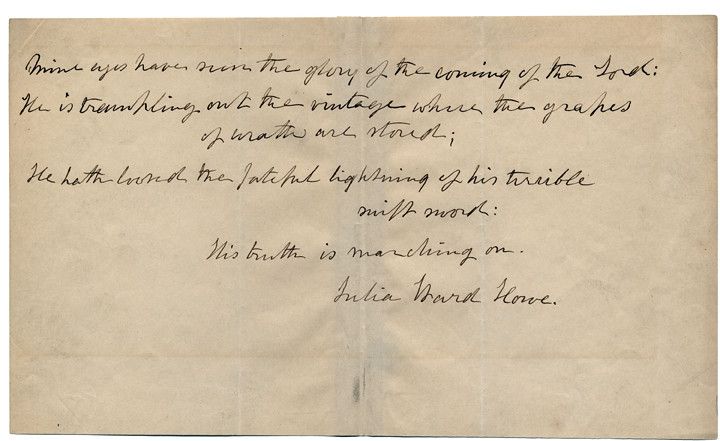 Mine eyes have seen the glory of the coming of the Lord:
He is trampling out the vintage where the grapes
of wrath are stored;
He hath loosed the fateful lightning of his terrible
swift sword:
His truth is marching on.
Julia Ward Howe.